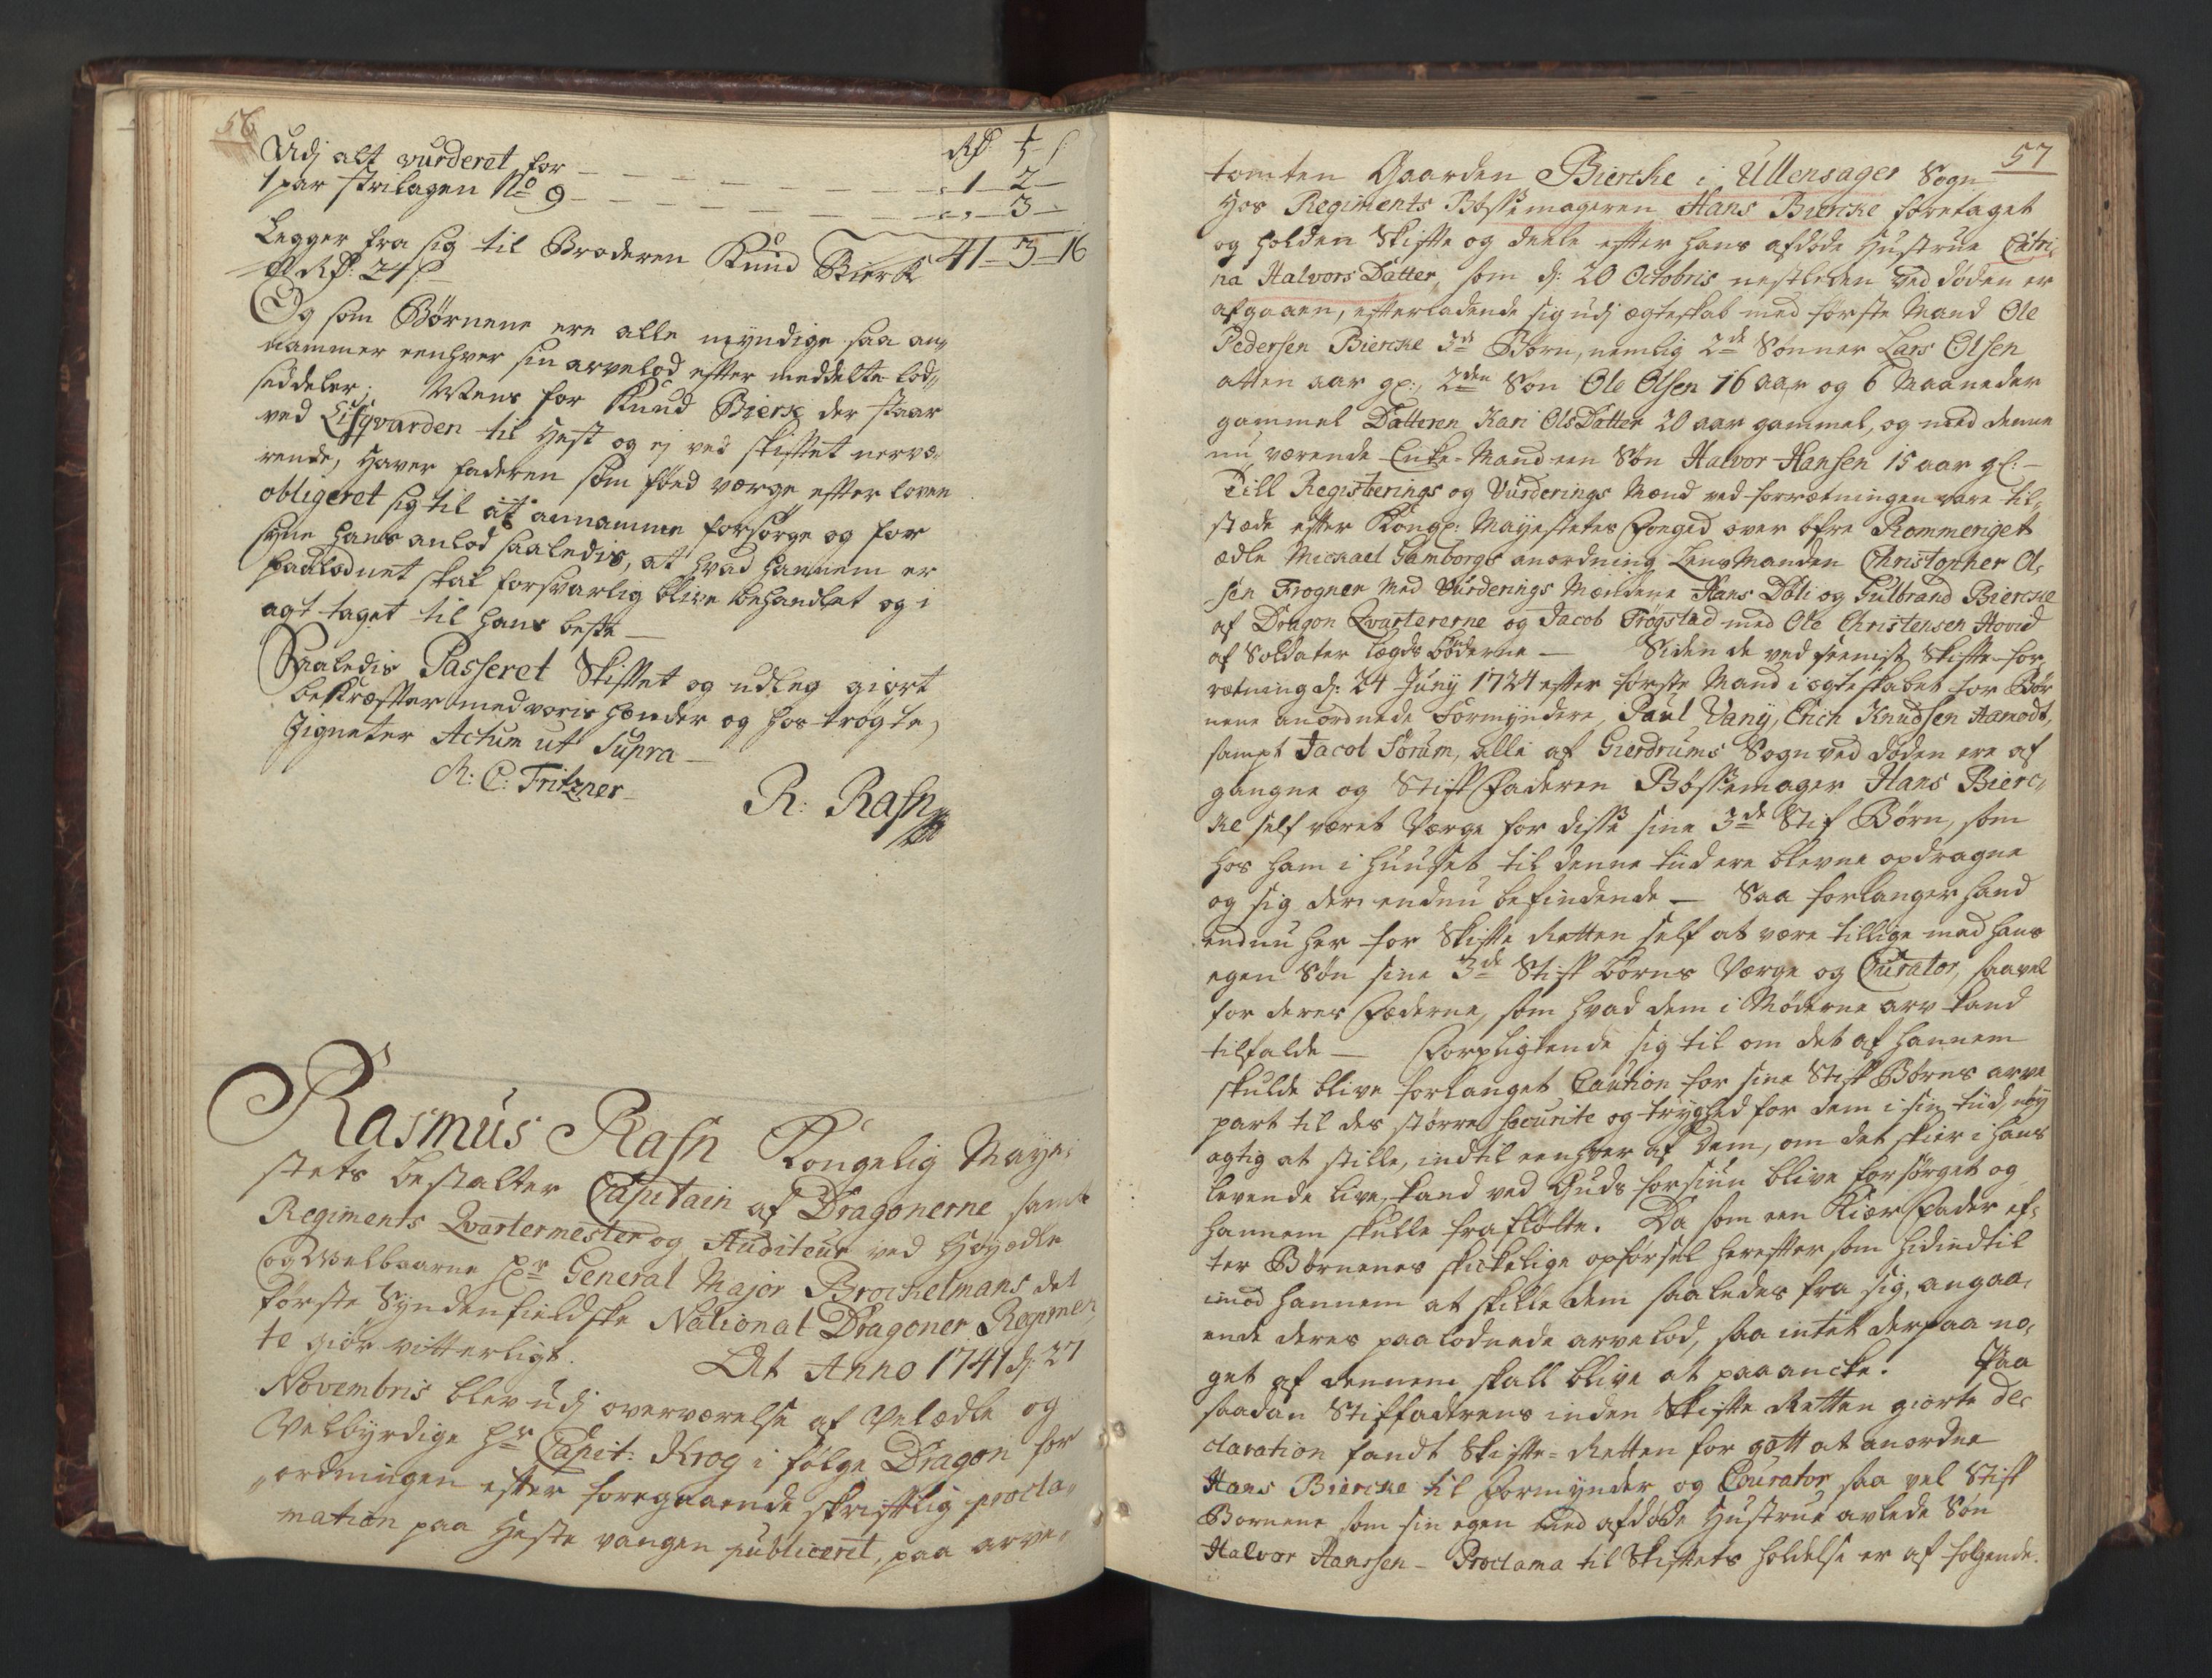 56
Rd. ort s.
Udj alt vurderet for — 1 — 2 —
1 par strilagen No 9 — „ — 3 —
41 — 3 — 16
Legger fra sig til Broderen Knud Bierk
Rd: 24 s
Og som Børnene ere alle myndige saa an„
nammer eenhver sin arvelod efter meddelte lod„
seddeler; Mens for Knud Bierk der staar
ved Lifqvarden til Hest og ej ved skiftet nervæ„
rende, Haver faderen som fød værge efter loven
obligeret sig til at annamme forsørge og for
syne hans anlod saaledis, at hvad hannem er
paalodnet skal forsvarlig blive behandlet og i
agt taget til hans beste —
Saaledis Passeret Skiftet og udleg giort
bekræffter med voris hænder og hos trøgte
Zigneter Actum ut Supra —
R: C: Fritzner
R: Rafn
Rasmus Rafn Kongelig Maye„
stets bestalter Capitain af Dragonerne samt
Regiments Qvartermester og Auditeur ved Høyædle
og Velbaarne Hr General Major Brockelmans det
Første Syndenfieldske National Dragoner Regimen„
te giør vitterligt. At Anno 1741 d: 27
Novembris blev udj overværelse af Velædle og
Velbyrdige Hr Capit: Krog i følge Dragon for
„ordningen efter foregaaende skrifftlig procla„
mation paa Heste vangen publiceret, paa arve„
57
tomten Gaarden Biercke i Ullensager Sogn
hos Regiments Bøssemageren Hans Biercke foretaget
og holden Skifte og deele efter hans afdøde Hustrue Catri„
na Halvors Datter, som d: 20 Octobris nestleden ved døden er
afgaaen, efterladende sig udj ægteskab med første Mand Ole
Pedersen Biercke 3de Børn, nemlig 2de Sønner Lars Olsen
atten aar gl:, 2den Søn Ole Olsen 16 aar og 6 Maaneder
gammel Datteren Kari Ols Datter 20 aar gammel, og med denne
nu værende Enke-Mand een Søn Halvor Hansen 15 aar gl: —
Till Registerings og Vurderings Mænd ved forretningen vare til„
stæde efter Kongl: Mayestetes Fooged over Øfre Rommeriget
ædle Michael Hamborgs anordning LensManden Christopher Ol„
sen Frogner Med Vurderings Mændene Hans Døli og Gulbrand Biercke
af Dragon Qvartererne og Jacob Frogstad med Ole Christensen Hovid
af Soldater lægds bøderne — Siden de ved seeniste Skifte-for„
retning d: 24 Juny 1724 efter første Mand i ægteskabet for Bør„
nene anordnede Formyndere, Paul Vany, Erich Knudsen Aamodt,
sampt Jacob Sørum, alle af Gierdrums Sogn ved døden ere af
gangne og Stiffaderen Bøssemager Hans Bierc„
ke self været Værge for disse sine 3de Stif Børn, som
hos ham i huuset til denne tiid ere blevne opdragne
og sig der endnu befindende — Saa forlanger hand
endnu her for Skifte Retten self at være tillige med hans
egen Søn sine 3de Stif børns Værge og Curator, saavel
for deres Fæderne, som hvad dem i Møderne arv kand
tilfalde — Forpligtende sig til om det af hannem
skulde blive forlanget Caution for sine Stif Børns arve
part til des større securite og tryghed for dem i sin tiid nøy
agtig at stille, indtil eenhver af dem, om det skier i hans
levende live, kand ved Guds forsiun blive forsørget og
hannem skulle frafløtte. Da som een Kiær Fader ef„
ter Børnenes skickelige opførsel herefter som hidindtil
imod hannem at skille dem saaledes fra sig, angaa„
ende deres paalodnede arvelod, saa intet derpaa no„
get af dennem skall blive at paaancke. Paa
saadan Stiffaderens inden Skifte Retten giorte De„
claration fandt Skifte-Retten for gott at anordne
Hans Biercke til Formynder og Courator saa vel Stif
Børnene som sin egen med afdøde Hustrue avlede Søn
Halvor Hanssen — Proclama til Skiftets holdelse er af følgende.